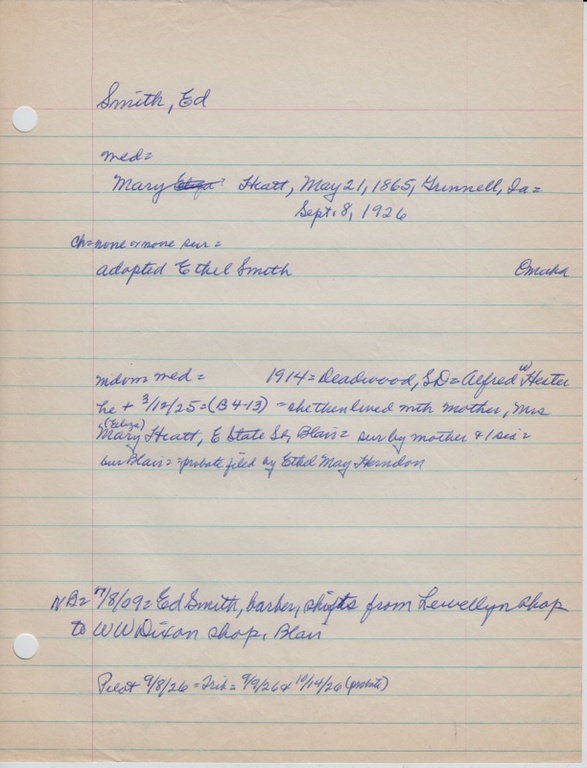 Smith, Ed
med=
Mary Eliza Hiatt, May 21, 1865, Grinnell, Ia=
Sept. 8, 1926
Ch=none or none sur=
adopted Ethel Smith Omaha
widow med= 1914=Deadwood, SD=Alfred W Hester
he + 3/12/25=(B4-13) =she then lived with mother, Mrs
(Eliza)
Mary Hiatt, E State St, Blair= sur by mother & 1 sis=
bur Blair= =probate filed by Ethel May Herndon
NB= 7/8/09=Ed Smith, barber, shifts from Lewellyn shop
to WW Dixon shop, Blair
Pilot 9/8/26=Trib=9/9/26& 10/14/26 (probate)